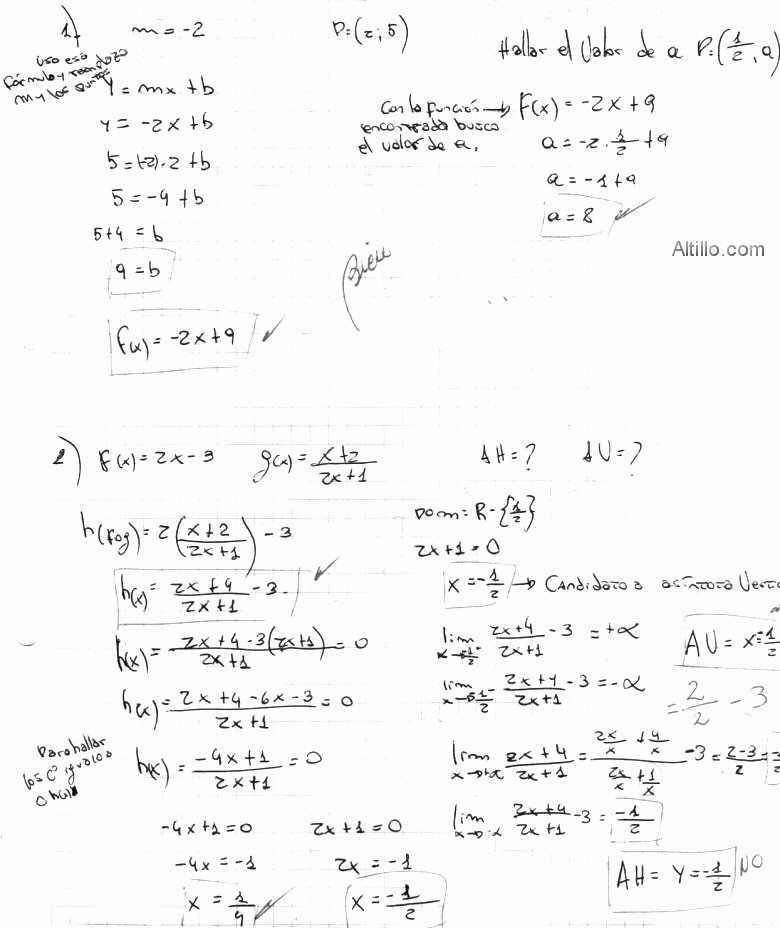 1)
m = -2
P=(2;5)
Hallar el Valor de a P=(1/2, a)
uso esa
fórmula y reemplazo
m y los puntos
Y = mx + b
Y = -2x + b
5 = (-2).2 + b
5 = -4 + b
5+4 = b
9 = b
f(x) = -2x+9
Con la función → F(x) = -2x + 9
encontrada busco
el valor de a,
a = -2 . 1/2 + 9
a = -1 + 9
a = 8
Altillo.com
Bien
2) f(x) = 2x - 3 g(x) = (x+2)/(2x+1) AH = ? AV = ?
h(fog) = 2((x+2)/(2x+1)) - 3
h(x) = (2x+4)/(2x+1) - 3
h(x) = (2x+4-3(2x+1))/(2x+1) = 0
h(x) = (2x+4-6x-3)/(2x+1) = 0
Para hallar
los C° igualo a
0 h(x)
h(x) = (-4x+1)/(2x+1) = 0
-4x+1 = 0 2x+1 = 0
-4x = -1 2x = -1
x = 1/4 x = -1/2
Dom = R - {1/2}
2x+1 = 0
x = -1/2 → Candidato a asíntota Vert
lim (2x+4)/(2x+1) - 3 = +∞
AV = x = -1/2
lim (2x+4)/(2x+1) - 3 = -∞
= 2/2 - 3
lim x→+∞ (2x+4)/(2x+1) = (2x/x + 4/x)/(2x/x + 1/x) - 3 = (2-3)/2 =
lim x→-∞ (2x+4)/(2x+1) - 3 = -1/2
AH = Y = -1/2 NO